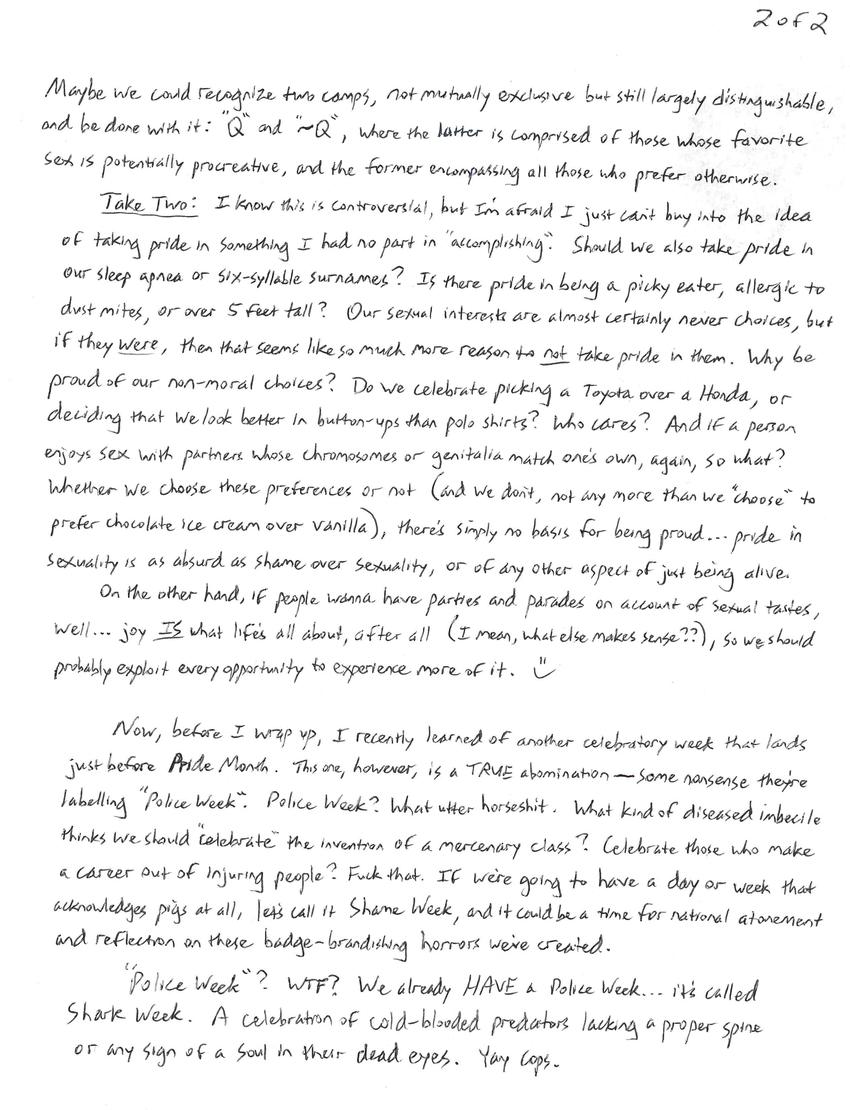 2 of 2
Maybe we could recognize two camps, not mutually exclusive but still largely distinguishable,
and be done with it: "Q" and "~Q", where the latter is comprised of those whose favorite
sex is potentially procreative, and the former encompassing all those who prefer otherwise.
Take Two: I know this is controversial, but I'm afraid I just can't buy into the idea
of taking pride in something I had no part in "accomplishing". Should we also take pride in
our sleep apnea or six-syllable surnames? Is there pride in being a picky eater, allergic to
dust mites, or over 5 feet tall? Our sexual interests are almost certainly never choices, but
if they were, then that seems like so much more reason to not take pride in them. Why be
proud of our non-moral choices? Do we celebrate picking a Toyota over a Honda, or
deciding that we look better in button-ups than polo shirts? Who cares? And if a person
enjoys sex with partners whose chromosomes or genitalia match one's own, again, so what?
Whether we choose these preferences or not (and we don't, not any more than we "choose" to
prefer chocolate ice cream over vanilla), there's simply no basis for being proud... pride in
sexuality is as absurd as shame over sexuality, or of any other aspect of just being alive.
On the other hand, if people wanna have parties and parades on account of sexual tastes,
well... joy IS what life's all about, after all (I mean, what else makes sense??), so we should
probably exploit every opportunity to experience more of it.
Now, before I wrap up, I recently learned of another celebratory week that lands
just before Pride Month. This one, however, is a TRUE abomination — some nonsense they're
labelling "Police Week". Police Week? What utter horseshit. What kind of diseased imbecile
thinks we should "celebrate" the invention of a mercenary class? Celebrate those who make
a career out of injuring people? Fuck that. If we're going to have a day or week that
acknowledges pigs at all, let's call it Shame Week, and it could be a time for national atonement
and reflection on these badge-brandishing horrors we've created.
"Police Week"? WTF? We already HAVE a Police Week... it's called
Shark Week. A celebration of cold-blooded predators lacking a proper spine
or any sign of a soul in their dead eyes. Yay Cops.